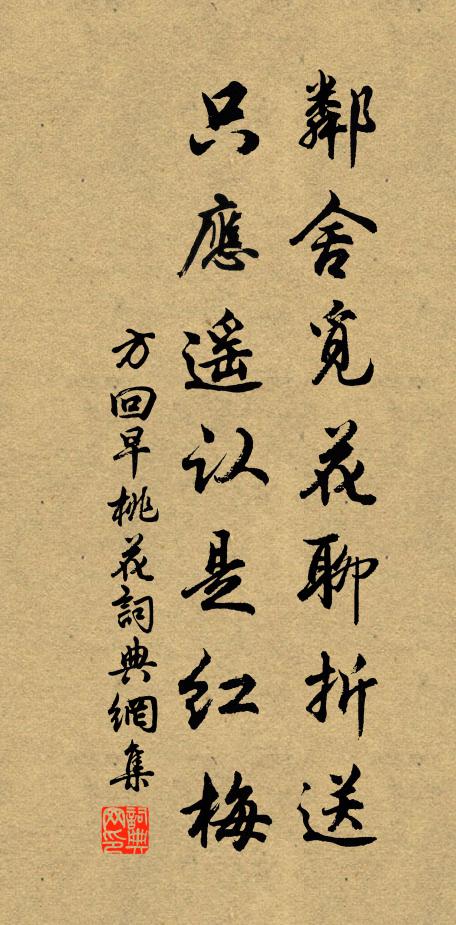 鄰舍覓花聊折送
只應遥认是红梅
方回早桃花詞典網集
詞典網印